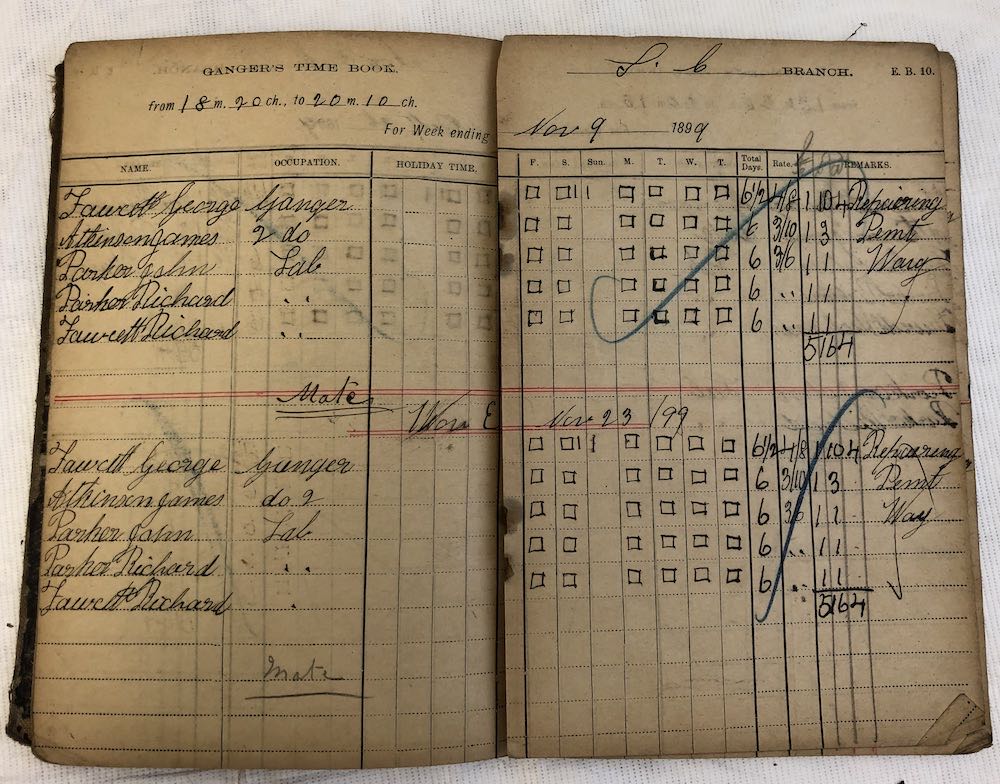 GANGER'S TIME BOOK. S. C BRANCH. E. B. 10.
from 18 m. 20 ch., to 20 m. 10 ch.
For Week ending Nov 9 1899
NAME. OCCUPATION. HOLIDAY TIME, F. S. Sun. M. T. W. T. Total Days. Rate. REMARKS.
Fawcett George Ganger 1 6 1/2 4/8 1 10 4 Repairing
Atkinson james 2 do 6 3/10 1 3 Pemt
Parker john Lab 6 3/6 1 1 Way
Parker Richard " 6 " 1 1
Fawcett Richard " 6 " 1 1
5 16 4
Mate
Nov 23 /99
Fawcett George Ganger 1 6 1/2 4/8 1 10 4 Repairing
Atkinson james do 2 6 3/10 1 3 Pemt
Parker john Lab 6 3/6 1 1 Way
Parker Richard " 6 " 1 1
Fawcett Richard " 6 " 1 1
5 16 4
Mate